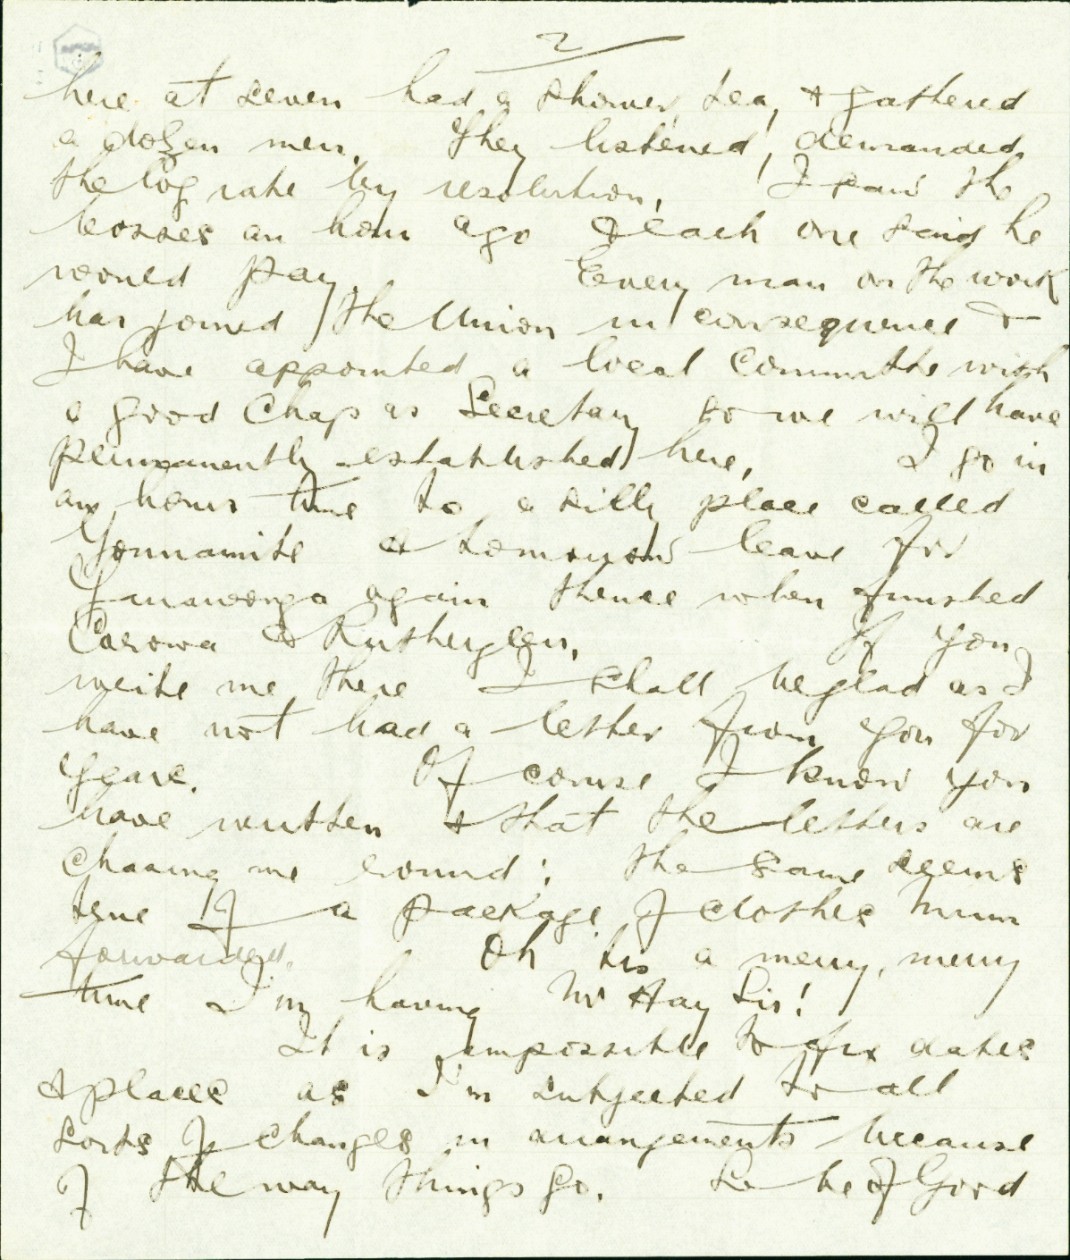 2
here at seven had a shower, tea, & gathered
a dozen men. They listened, demanded
the log rate by resolution. I saw the
bosses an hour ago & each one said he
would pay. Every man on the work
has joined the Union in consequence &
I have appointed a local Committee with
a good Chap as Secretary so we will have
permanently established here. I go in
an hours time to a silly place called
Yunnamite & tomorrow leave for
Yarrawonga again thence when finished
Corowa & Rutherglen. If you
write me there I shall be glad as I
have not had a letter from you for
years. Of course I know you
have written & that the letters are
chasing me round; the same seems
true of a package of clothes Mum
forwarded. Oh tis a merry, merry
time I'm having Mr Hay Sir!
It is impossible to fix dates
& places as I'm subjected to all
sorts of changes in arrangements because
of the way things go. So be of Good